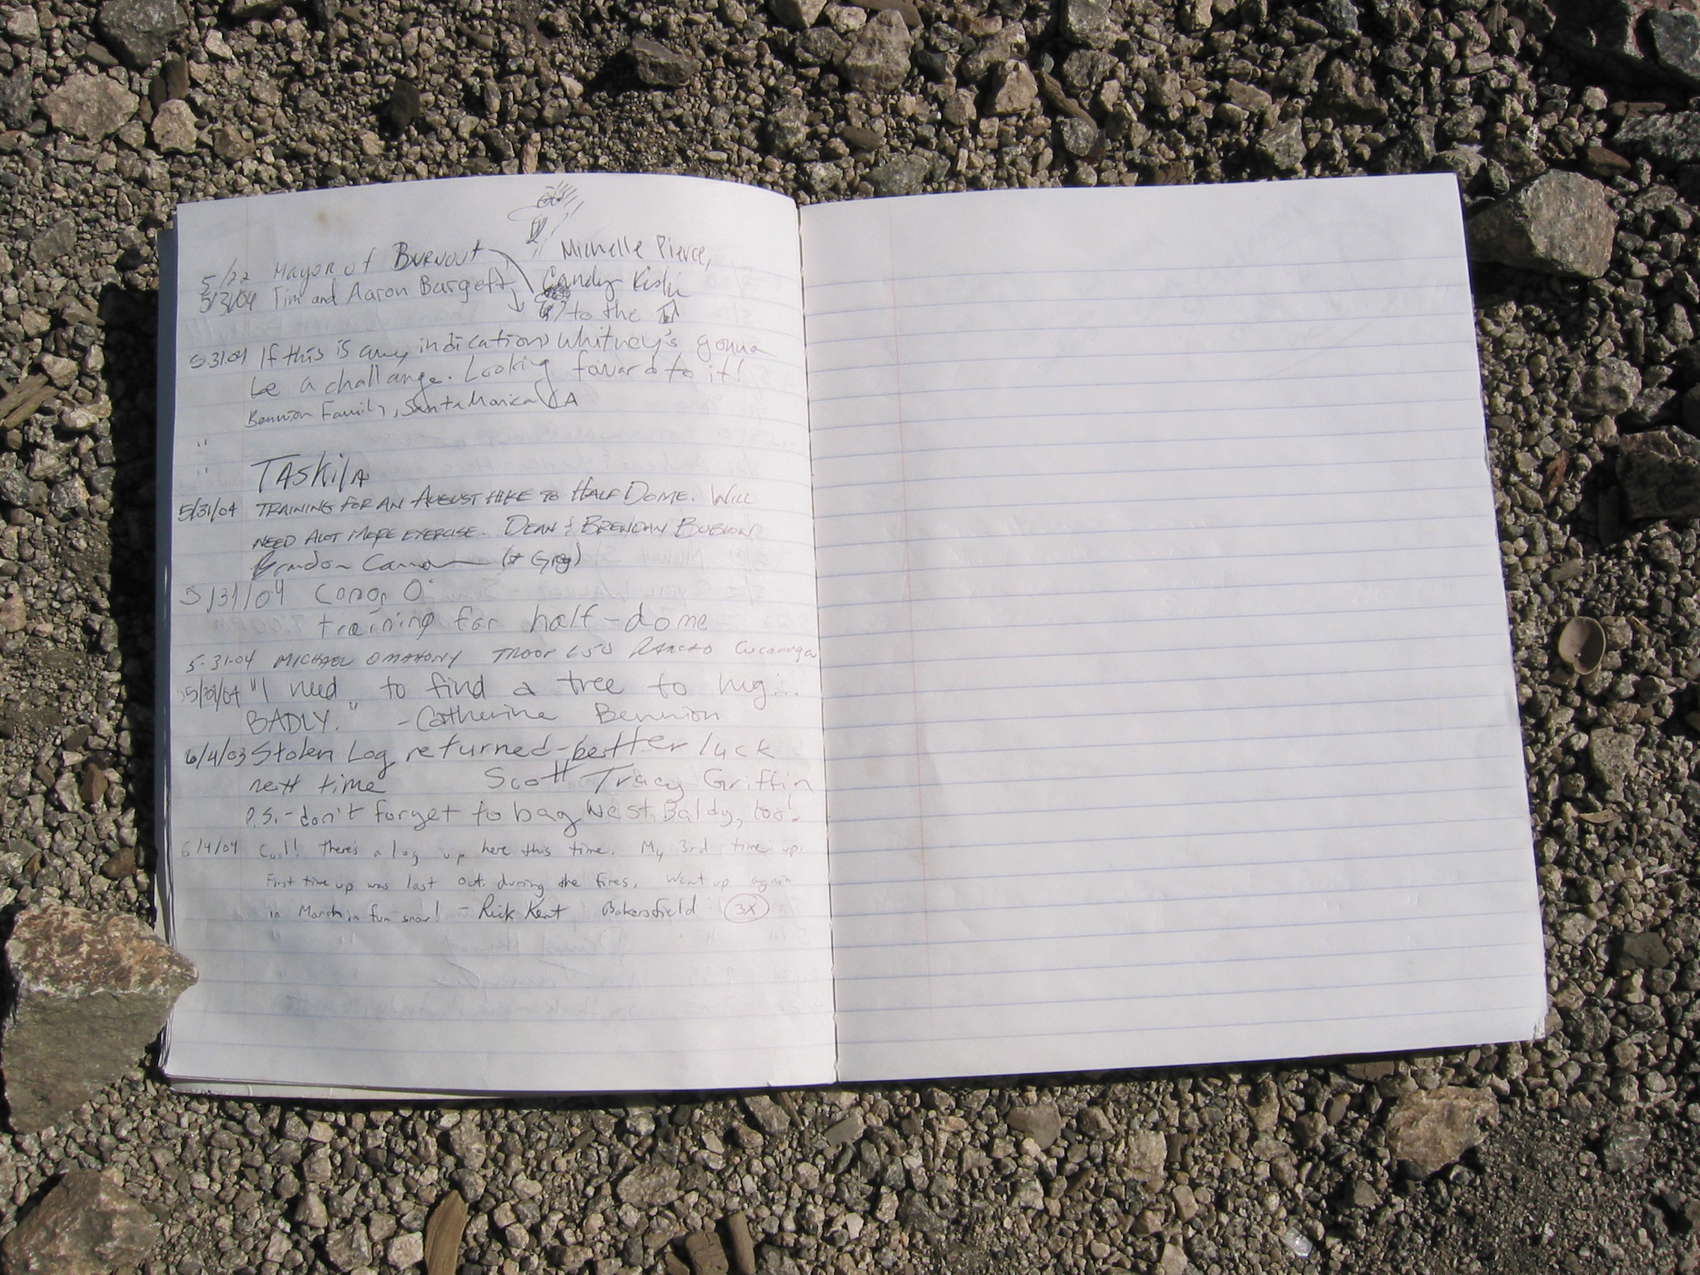 5/22 Mayor of Burnout Michelle Pierce,
5/31/04 Tim and Aaron Bargett, Candy
to the
5-31-04 If this is any indication, Whitney's gonna
be a challange. Looking forward to it!
Bennion Family, Santa Monica CA
"
" TASKila
5/31/04 TRAINING FOR AN AUGUST HIKE TO HALF DOME. WILL
NEED ALOT MORE EXERCISE. DEAN & BRENDAN
Brandon (+ Greg)
5/31/04 Conor O'
training for half-dome
5-31-04 MICHAEL OMAHONY TROOP 650 RANCHO Cucamonga
5/31/04 "I need to find a tree to hug...
BADLY." -Catherine Bennion
6/4/03 Stolen Log returned-better luck
next time Scott Tracy Griffin
P.S.-don't forget to bag West Baldy, too!
6/4/04 Cool! There's a log up here this time. My 3rd time up.
First time up was last Oct. during the fires. Went up again
in March in fun snow! - Rick Kent Bakersfield 3X